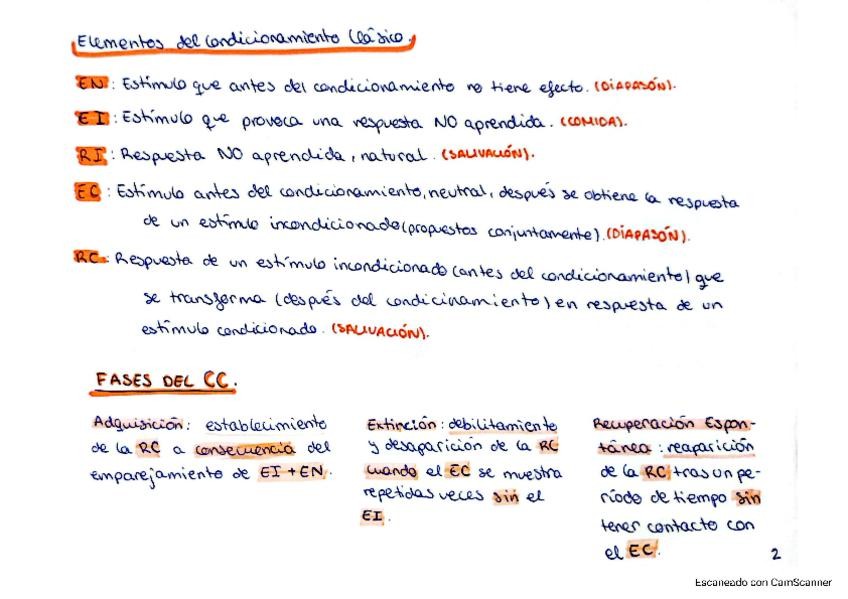 Elementos del Condicionamiento Clásico.
EN: Estímulo que antes del condicionamiento no tiene efecto. (DIAPASÓN).
EI: Estímulo que provoca una respuesta NO aprendida. (COMIDA).
RI: Respuesta NO aprendida, natural. (SALIVACIÓN).
EC: Estímulo antes del condicionamiento, neutral, después se obtiene la respuesta
de un estímulo incondicionado (propuestos conjuntamente). (DIAPASÓN).
RC: Respuesta de un estímulo incondicionado (antes del condicionamiento) que
se transforma (después del condicinamiento) en respuesta de un
estímulo condicionado. (SALIVACIÓN).
FASES DEL CC.
Adquisición: establecimiento
de la RC a consecuencia del
emparejamiento de EI + EN.
Extinción: debilitamiento
y desaparición de la RC
cuando el EC se muestra
repetidas veces sin el
EI.
Recuperación Espon-
tánea: reaparición
de la RC tras un pe-
ríodo de tiempo sin
tener contacto con
el EC.
2
Escaneado con CamScanner